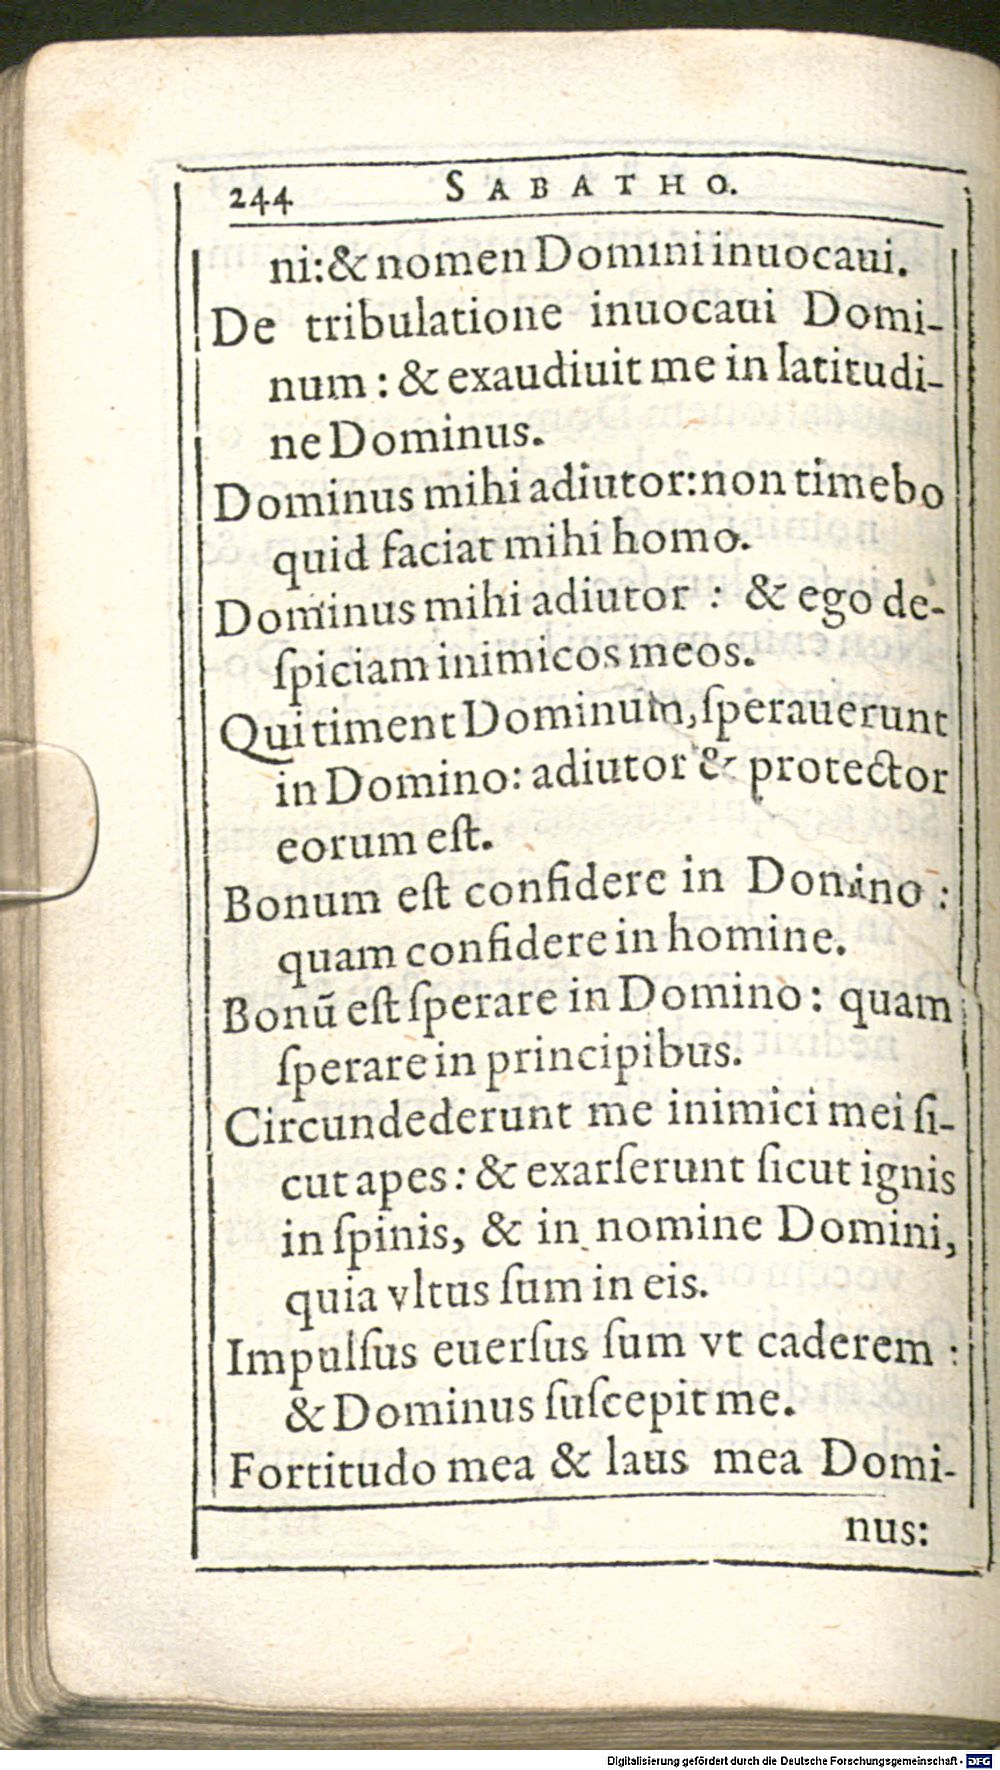 244 SABATHO.
ni:& nomen Domini inuocaui.
De tribulatione inuocaui Domi-
num : & exaudiuit me in latitudi-
ne Dominus.
Dominus mihi adiutor:non timebo
quid faciat mihi homo.
Dominus mihi adiutor : & ego de-
ſpiciam inimicos meos.
Qui timent Dominum,ſperauerunt
in Domino: adiutor & protector
eorum eſt.
Bonum eſt confidere in Domino :
quam confidere in homine.
Bonū eſt ſperare in Domino: quam
ſperare in principibus.
Circundederunt me inimici mei ſi-
cut apes : & exarſerunt ſicut ignis
in ſpinis, & in nomine Domini,
quia vltus ſum in eis.
Impulſus euerſus ſum vt caderem :
& Dominus ſuſcepit me.
Fortitudo mea & laus mea Domi-
nus:
Digitalisierung gefördert durch die Deutsche Forschungsgemeinschaft - DFG